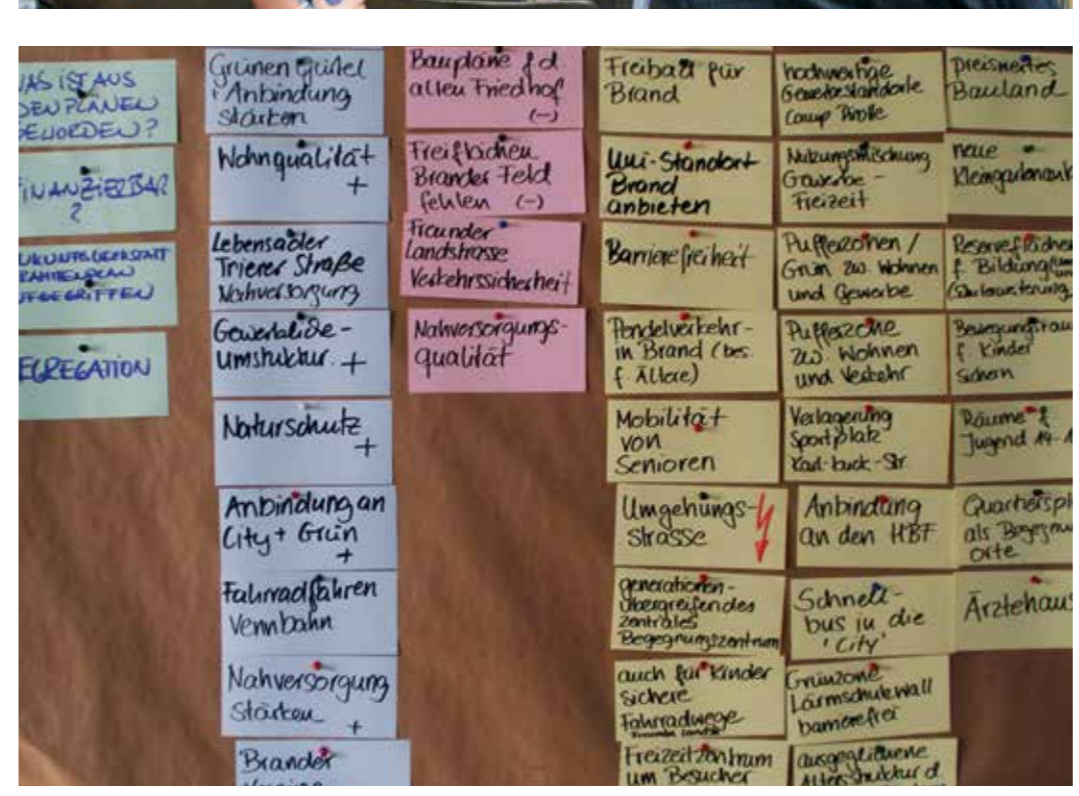 WAS IST AUS
DEN PLÄNEN
GEWORDEN?
FINANZIERBAR
?
ZUKUNFTSWERKSTATT
RAHMENPLAN
AUFGEGRIFFEN
SEGREGATION
Grünen Gürtel
Anbindung
stärken
Wohnqualität
+
Lebensader
Trierer Straße
Nahversorgung
Gewerbliche-
umstruktur. +
Naturschutz
+
Anbindung an
City + Grün
+
Fahrradfahren
Vennbahn
Nahversorgung
Stärken
+
Brander
Vereine
Baupläne f d
alten Friedhof
(-)
Freiflächen
Brander Feld
fehlen (-)
Freunder
Landstrasse
Verkehrssicherheit
Nahversorgungs-
qualität
Freibad für
Brand
Uni-Standort
Brand
anbieten
Barrierefreiheit
Pendelverkehr-
in Brand (bes.
f. Ältere)
Mobilität
von
Senioren
Umgehungs-
strasse
generationen-
übergreifendes
zentrales
Begegnungszentrum
auch für Kinder
sichere
Fahrradwege
Freizeitzentrum
um Besucher
hochwertige
Gewerbestandorte
Camp Pirotte
Nutzungsmischung
Gewerbe -
Freizeit
Pufferzonen /
Grün zw. Wohnen
und Gewerbe
Pufferzone
zw. Wohnen
und Verkehr
Verlagerung
Sportplatz
Karl-Kuck-Str
Anbindung
an den HBF
Schnell-
bus in die
'City'
Grünzone
Lärmschutzwall
barrierefrei
ausgeglichene
Altersstruktur d.
preiswertes
Bauland
neue
Reserveflächen
f. Bildung
Bewegungsraum
f. Kinder
sichern
Räume f.
Jugend 14-1
Quartierspl
als Begegnun
orte
Ärztehaus